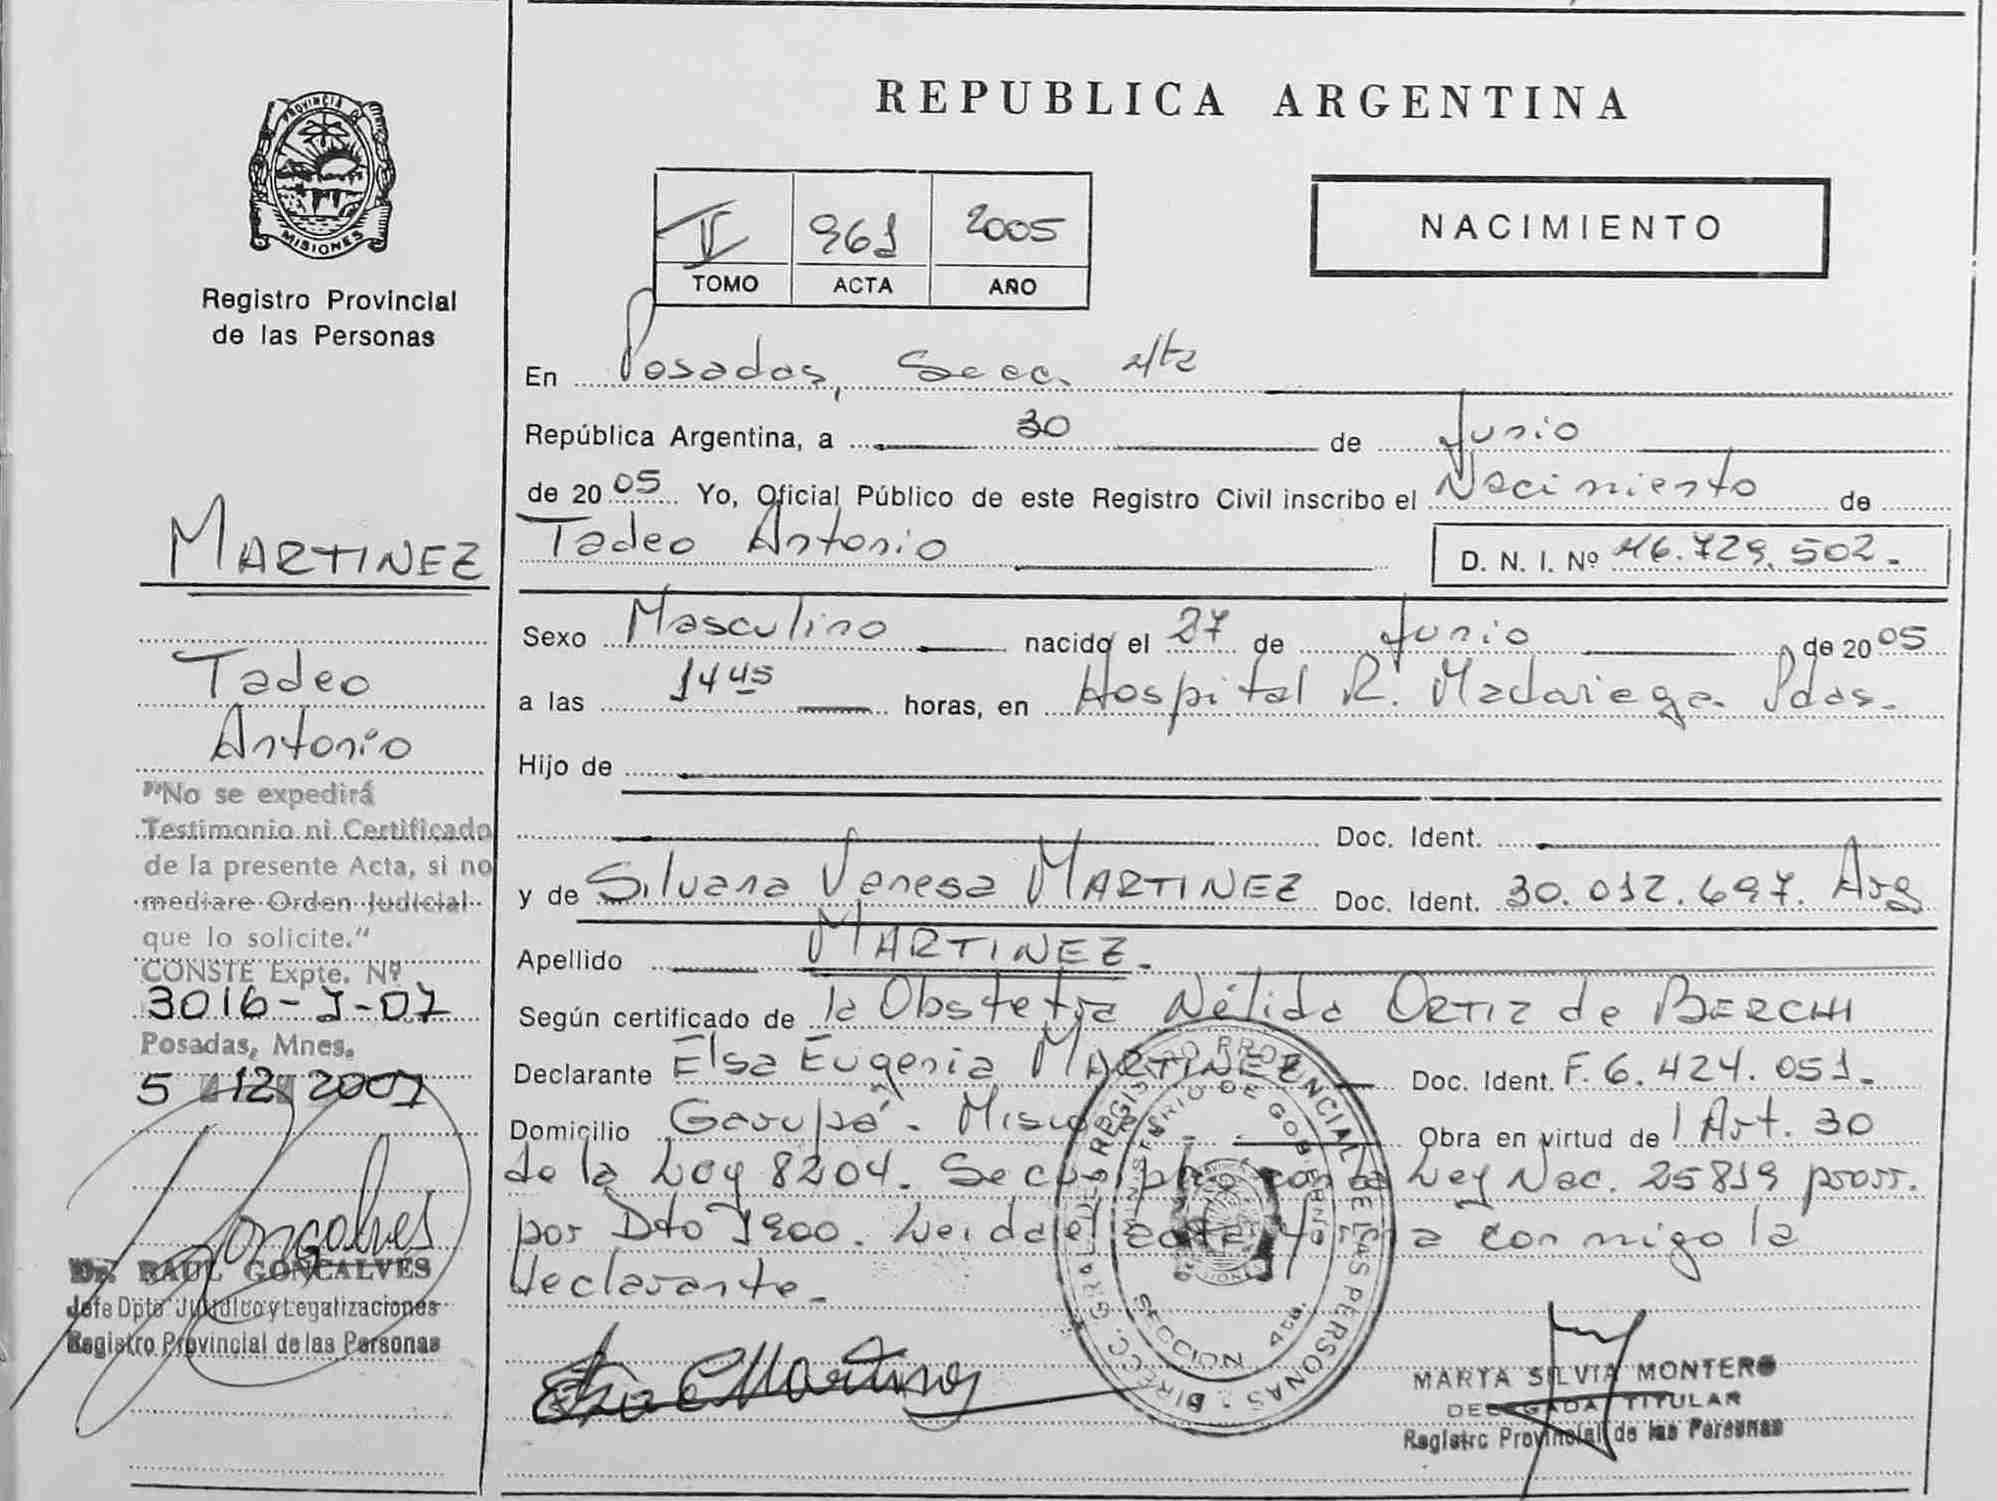 REPUBLICA ARGENTINA
PROVINCIA DE
MISIONES
Registro Provincial
de las Personas
II 961 2005
TOMO ACTA AÑO
NACIMIENTO
En Posadas, Secc. 4ta
República Argentina, a 30 de Junio
de 2005 Yo, Oficial Público de este Registro Civil inscribo el Nacimiento de
Tadeo Antonio D. N. I. Nº 46.729.502.-
Sexo Masculino nacido el 27 de Junio de 2005
a las 14 45 horas, en Hospital R. Madariaga. Pdas.
Hijo de
Doc. Ident.
y de Silvana Vanesa MARTINEZ Doc. Ident. 30.012.697. Arg
Apellido MARTINEZ.
Según certificado de la Obstetra Nélida ORTIZ de BERCHI
Declarante Elsa Eugenia MARTINEZ Doc. Ident. F. 6.424.051.-
Domicilio Garupá - Misiones - Obra en virtud de l Art. 30
de la Ley 8204. Se cumplió con la Ley Nac. 25819 prorr.
por Dto 1900. Leida el acta, firma conmigo la
declarante.-
MARTINEZ
Tadeo
Antonio
"No se expedirá
Testimonio ni Certificado
de la presente Acta, si no
mediare Orden Judicial
que lo solicite."
CONSTE Expte. Nº
3016-J-07
Posadas, Mnes.
5 12 2007
Goncalves
Dr. RAUL GONCALVES
Jefe Dpto Jurídico y Legalizaciones
Registro Provincial de las Personas
DIRECC. GRAL. DEL REGISTRO PROVINCIAL DE LAS PERSONAS
MINISTERIO DE GOBIERNO
SECCION 4ta.
MARTA SILVIA MONTERO
DELEGADA TITULAR
Registro Provincial de las Personas